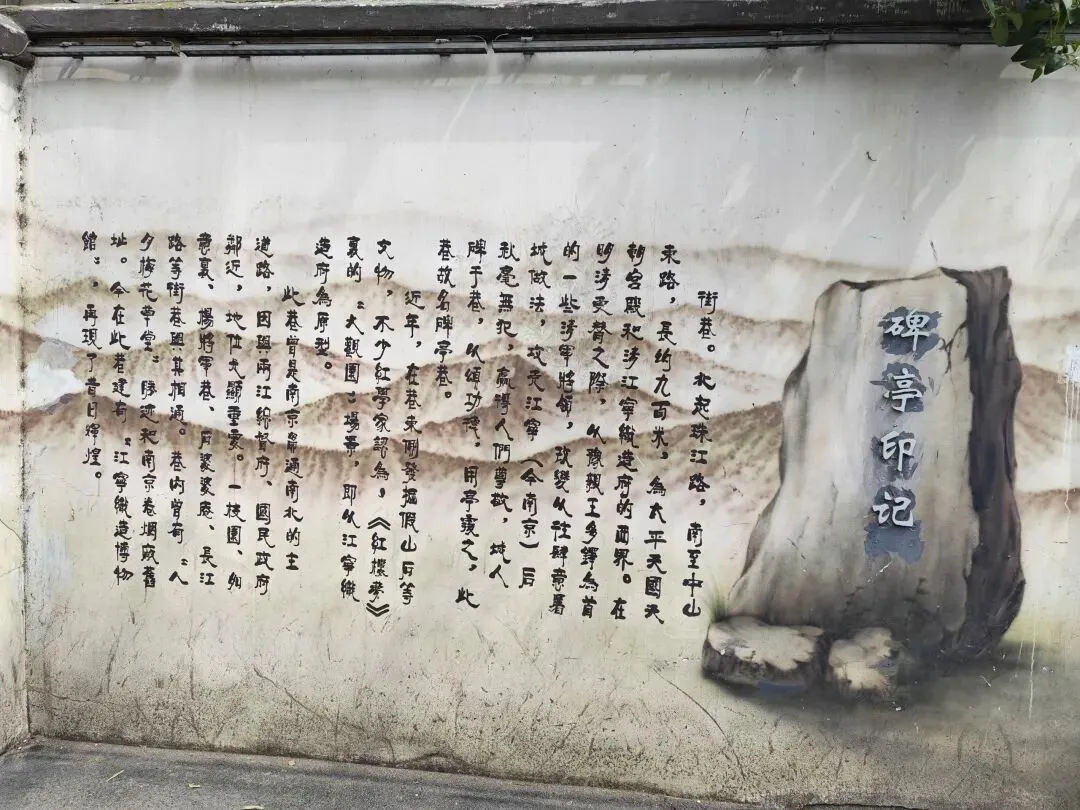 碑亭印记
街巷。北起珠江路，南至中山
東路，長约九百米，為太平天國天
朝宮殿和清江寧織造府的西界。在
明清更替之際，以豫親王多鐸為首
的一些清軍將領，改變以往肆意屠
城做法，攻克江寧（今南京）后
秋毫無犯，贏得人們尊敬，城人
碑于巷，以頌功德，用亭覆之，此
巷故名碑亭巷。
近年，在巷東側發掘假山石等
文物，不少红學家認為，《红樓夢》
裏的“大觀園”場景，即以江寧織
造府為原型。
此巷曾是南京通南北的主
道路，因與兩江總督府、國民政府
鄰近，地位尤顯重要。一枝園、如
意裏、楊將軍巷、石婆婆庵、長江
路等街巷與其相通。巷内曾有“八
夕梅花草堂”勝迹和南京卷烟廠舊
址。今在此巷建有“江寧織造博物
館”，再現了昔日輝煌。